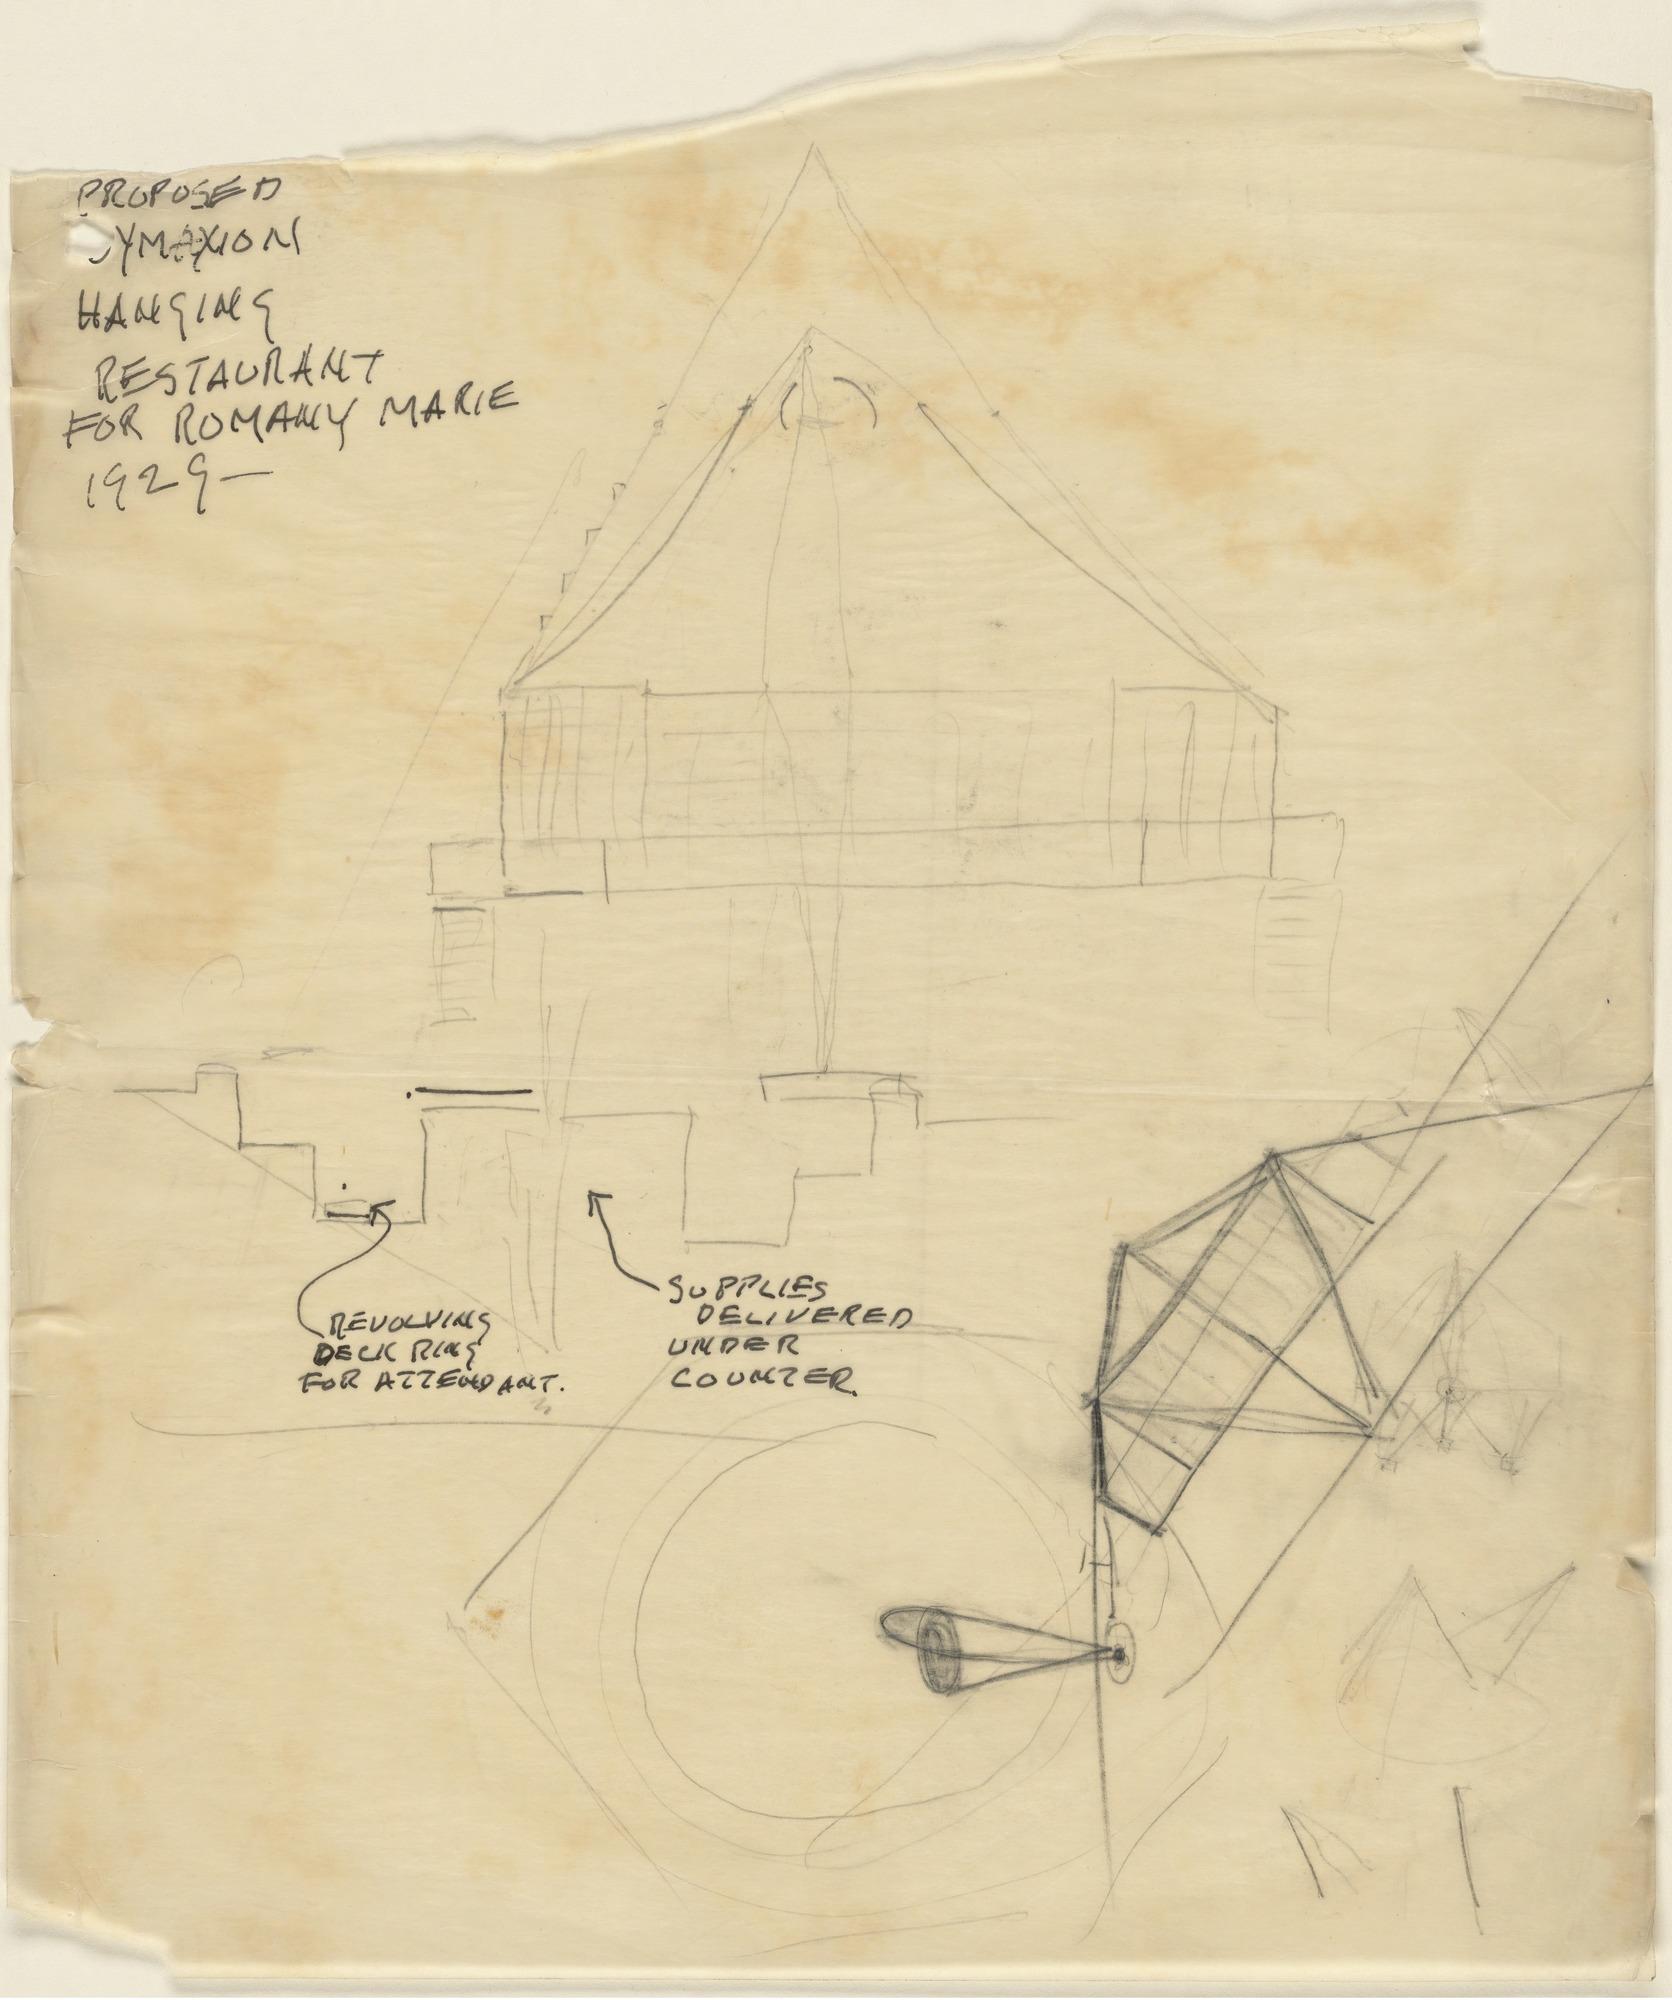 PROPOSED
DYMAXION
HANGING
RESTAURANT
FOR ROMANY MARIE
1929—
REVOLVING
DECK RING
FOR ATTENDANT.
SUPPLIES
DELIVERED
UNDER
COUNTER.